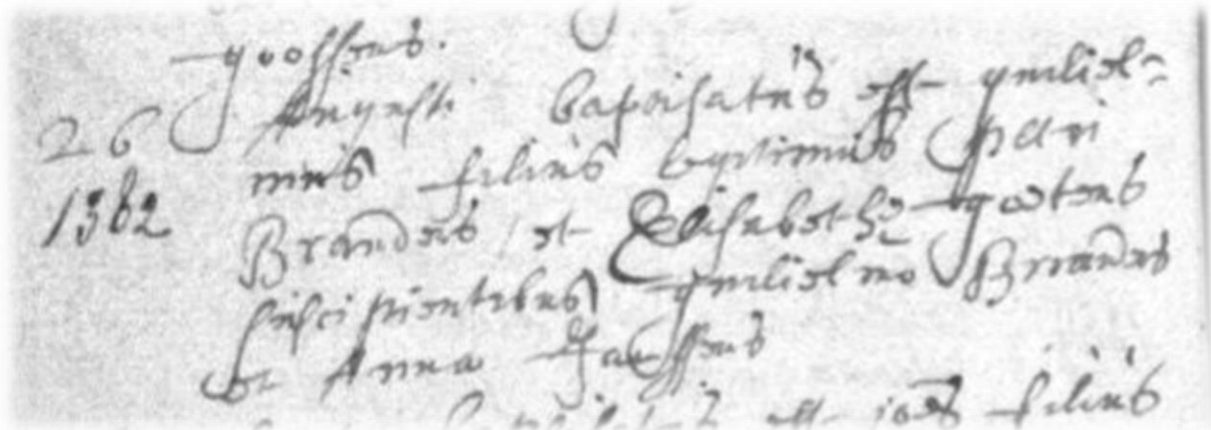 goossens.
26 Augusti baptisatus est guiliel=
1382 mus filius legitimus Petri
Branders et Elisabethe goetens
suscipientibus guilielmo Branders
et Anna Janssens
est filius